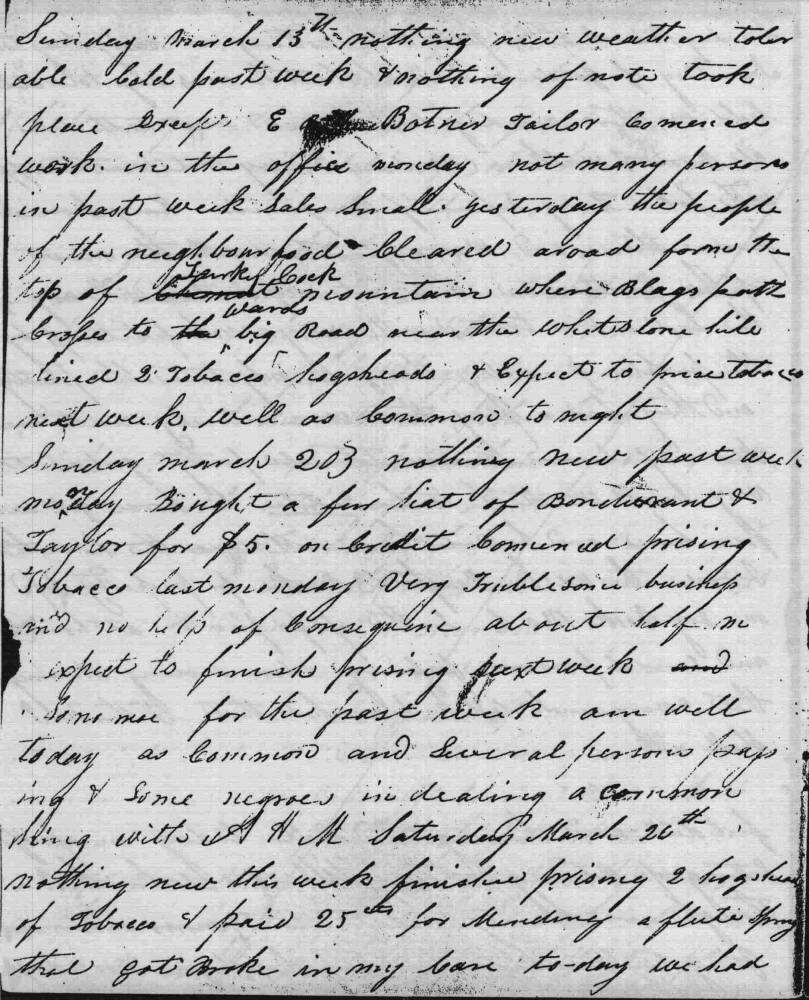 Sunday March 13th nothing new weather toler
able Cold past week & nothing of note took
place Except E Botner Tailor Comenced
work in the office monday not many persons
in past week Sales Small. yesterday the people
of the neighbourhood Cleared aroad form the
top of Turkey Cock mountain where Blags path
Crosses to wards big Road near the Whetstone hile
lined 2 Tobacco hogsheads & Expect to prise tobacco
next week. well as Common to night
Sunday march 20 nothing new past week
monday Bought a fur hat of Bondurant &
Taylor for $5. on Credit Comenced prising
Tobacco last monday Very Trublesome business
and no help of Consequine about half
expect to finish prising next week and
So no moe for the past week am well
today as Common and Several persons pass
ing & Some negroes in dealing a common
thing with A H M Saturday March 26th
nothing new this week finishe prising 2 hogshead
of Tobacco & paid 25 cts for Mending a flute Spring
that got Broke in my Care to-day we had